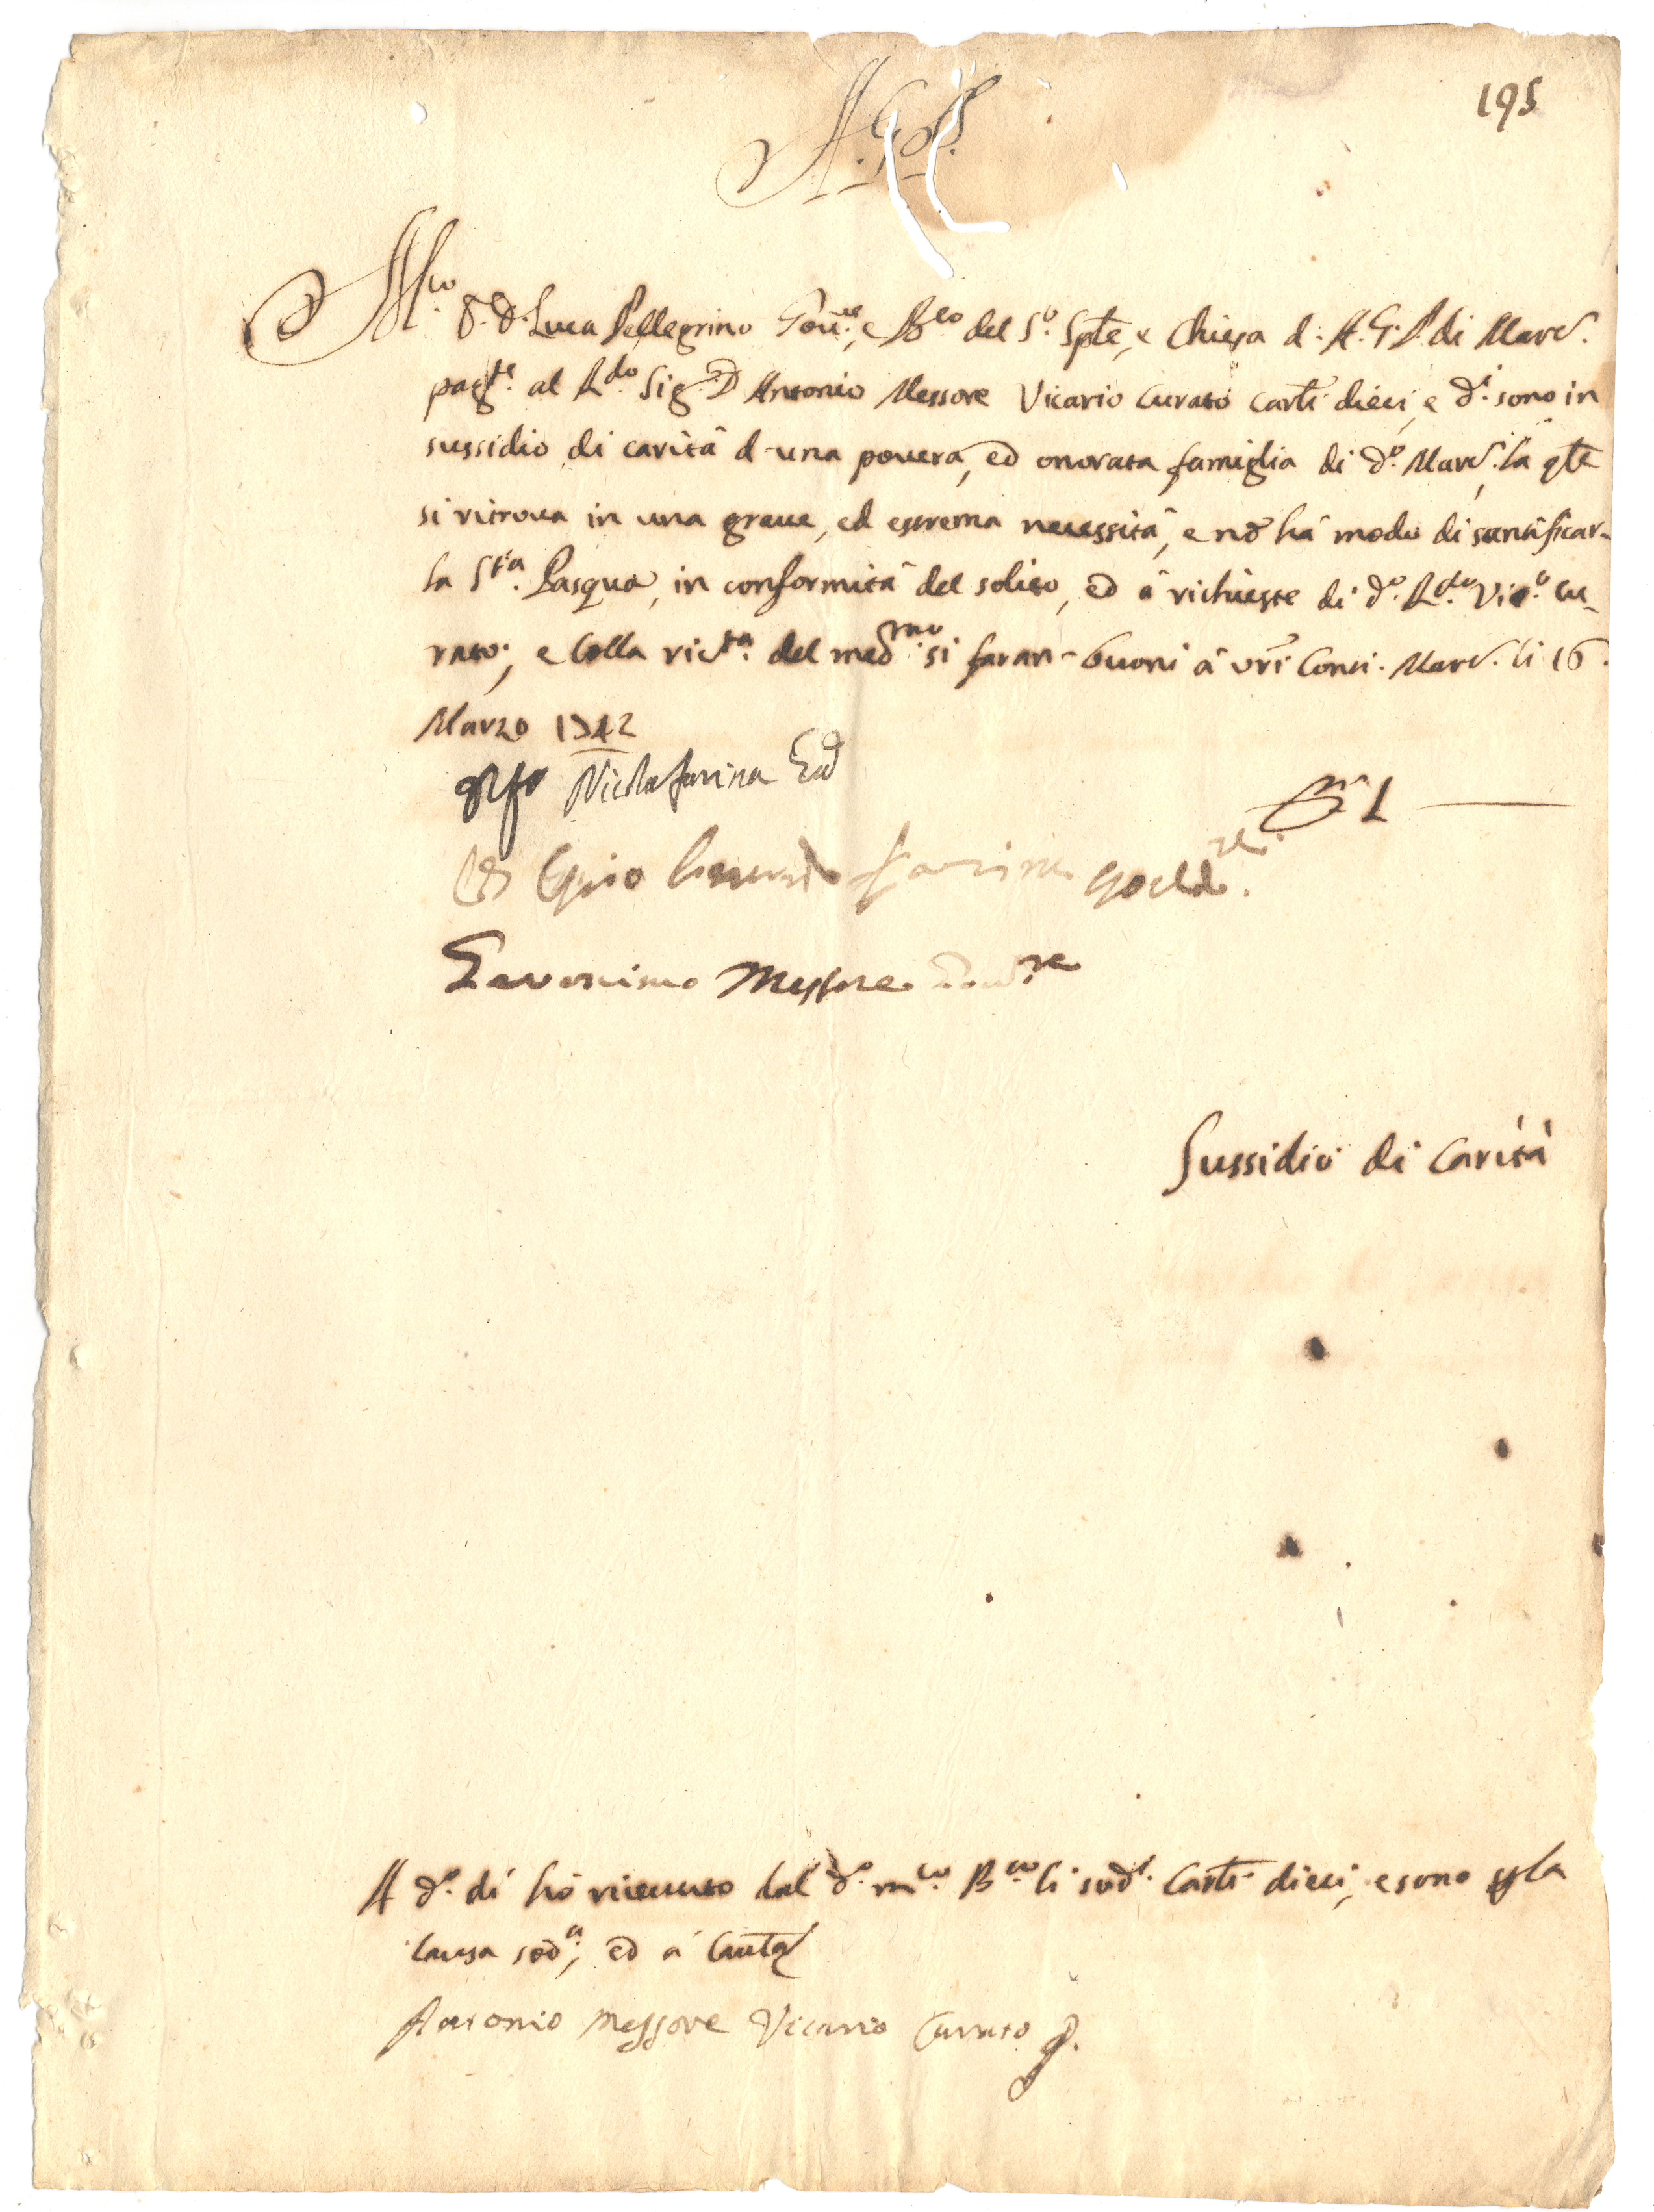 195
A. G. P.
M.co S.r D. Luca Pellegrino Gov.re, e B.co del S.o Sple, e Chiesa d. A. G. P. di Mard.
pag.te al R.do Sig. D Antonio Messore Vicario Curato Carli dieci, e d.i sono in
sussidio di carità d'una povera, ed onorata famiglia di d.o Mard. la qle
si ritrova in una grave, ed estrema necessità, e nõ hà modo di santificar-
la S.ta Pasqua, in conformità del solito, ed à richieste di d.o R.do Vic.o Cu-
rato; e colla ric.ta del med.mo si faran-buoni à vri Conti. Mard. li 16.
Marzo 1742
Nicola farina
farina
Geronimo Messore
Sussidio di Carità
A d.o dì hò ricevuto dal d.o m.co B.co li sud.i Carli dieci, e sono p la
causa sod.a, ed à Caut.
Antonio Messore Vicario Curato